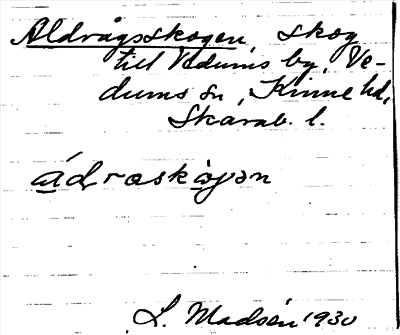 Aldrågsskogen, skog
till Vedums by, Ve-
dums sn, Kinne hd,
Skarab. l.
ádraskògən
L. Madsén 1930